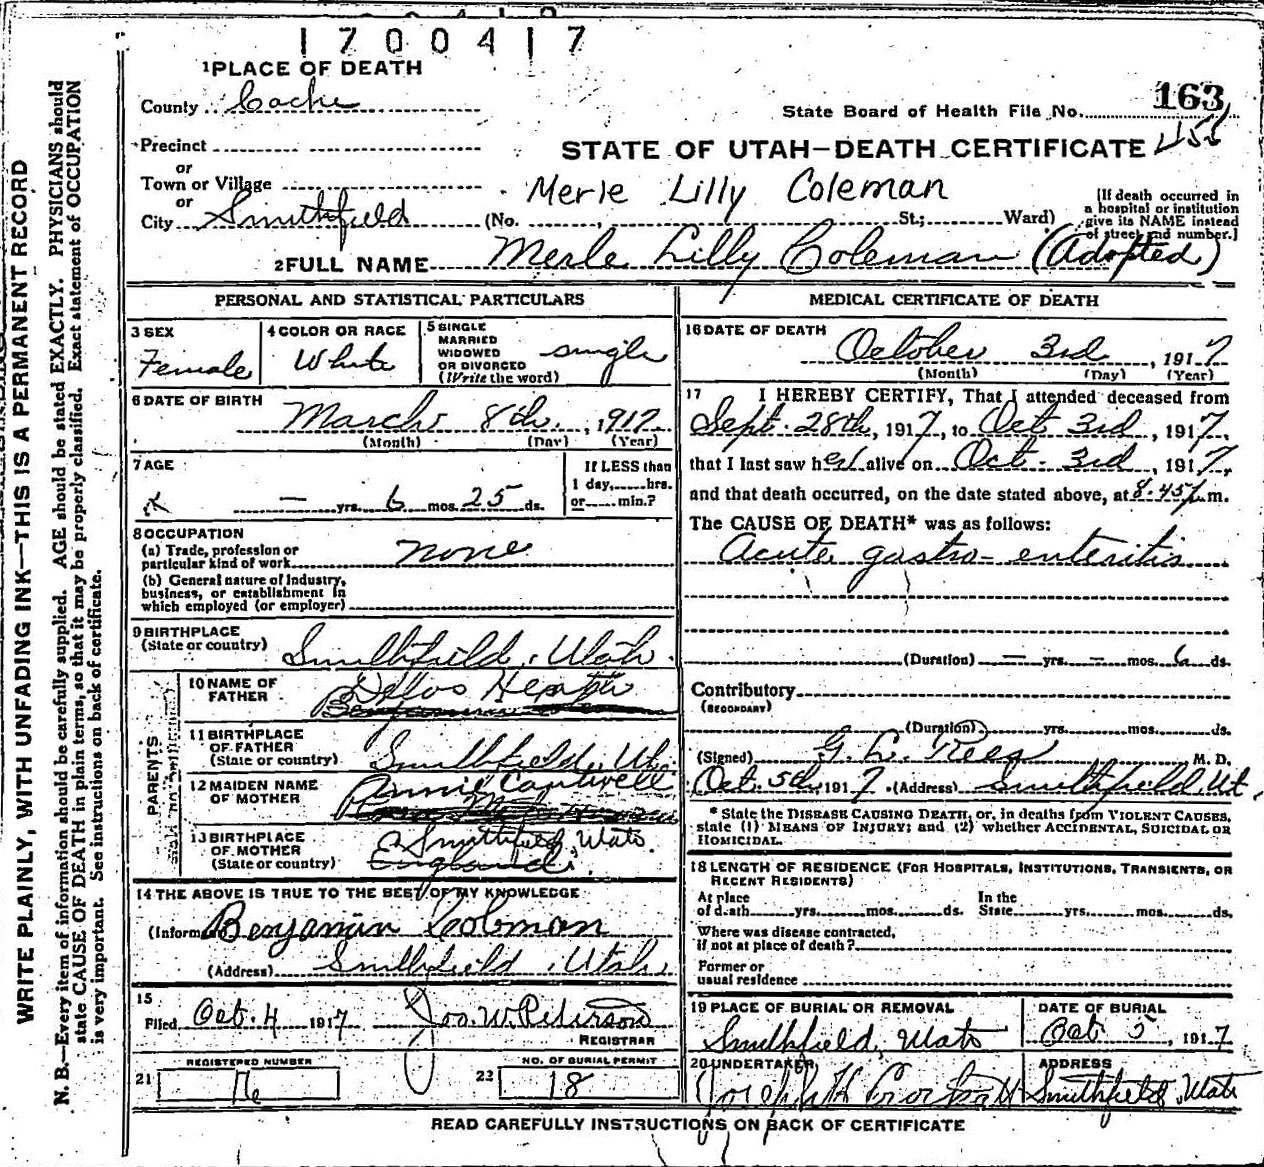 1700417
1 PLACE OF DEATH
County Cache
State Board of Health File No. 163
Precinct
STATE OF UTAH—DEATH CERTIFICATE
or
Town or Village
or
Merle Lilly Coleman
City Smithfield (No. , St.; Ward)
[If death occurred in a hospital or institution give its NAME instead of street and number.]
2 FULL NAME Merle Lilly Coleman (Adopted)
PERSONAL AND STATISTICAL PARTICULARS
3 SEX
Female
4 COLOR OR RACE
White
5 SINGLE
MARRIED
WIDOWED
OR DIVORCED
(Write the word)
single
6 DATE OF BIRTH
March 8th, 1917
(Month) (Day) (Year)
7 AGE
— yrs. 6 mos. 25 ds.
If LESS than
1 day, hrs.
or min.?
8 OCCUPATION
(a) Trade, profession or
particular kind of work none
(b) General nature of Industry,
business, or establishment in
which employed (or employer)
9 BIRTHPLACE
(State or country) Smithfield, Utah.
PARENTS
10 NAME OF
FATHER Heath
11 BIRTHPLACE
OF FATHER
(State or country) Smithfield, Ut.
12 MAIDEN NAME
OF MOTHER Annie Cantwell
13 BIRTHPLACE
OF MOTHER
(State or country) Smithfield, Utah.
England.
14 THE ABOVE IS TRUE TO THE BEST OF MY KNOWLEDGE
(Informant) Benjamin Coleman
(Address) Smithfield, Utah.
15
Filed Oct. 4 1917 Jos. W. Peterson
REGISTRAR
REGISTERED NUMBER
21 16
NO. OF BURIAL PERMIT
22 18
MEDICAL CERTIFICATE OF DEATH
16 DATE OF DEATH October 3rd, 1917
(Month) (Day) (Year)
17 I HEREBY CERTIFY, That I attended deceased from
Sept. 28th, 1917, to Oct 3rd, 1917,
that I last saw her alive on Oct. 3rd, 1917,
and that death occurred, on the date stated above, at 8.45 p.m.
The CAUSE OF DEATH* was as follows:
Acute gastro-enteritis
(Duration) — yrs. — mos. 6 ds.
Contributory
(SECONDARY)
(Duration) yrs. mos. ds.
(Signed) G. L. Rees M. D.
Oct. 5th, 1917 (Address) Smithfield, Ut.
* State the DISEASE CAUSING DEATH, or, in deaths from VIOLENT CAUSES,
state (1) MEANS OF INJURY; and (2) whether ACCIDENTAL, SUICIDAL OR
HOMICIDAL.
18 LENGTH OF RESIDENCE (FOR HOSPITALS, INSTITUTIONS, TRANSIENTS, OR
RECENT RESIDENTS)
At place In the
of death yrs. mos. ds. State yrs. mos. ds.
Where was disease contracted,
if not at place of death?
Former or
usual residence
19 PLACE OF BURIAL OR REMOVAL
Smithfield, Utah
DATE OF BURIAL
Oct 5, 1917
20 UNDERTAKER
Joseph H
ADDRESS
Smithfield, Utah
READ CAREFULLY INSTRUCTIONS ON BACK OF CERTIFICATE
WRITE PLAINLY, WITH UNFADING INK—THIS IS A PERMANENT RECORD
N. B.—Every item of information should be carefully supplied. AGE should be stated EXACTLY. PHYSICIANS should
state CAUSE OF DEATH in plain terms, so that it may be properly classified. Exact statement of OCCUPATION
is very important. See instructions on back of certificate.